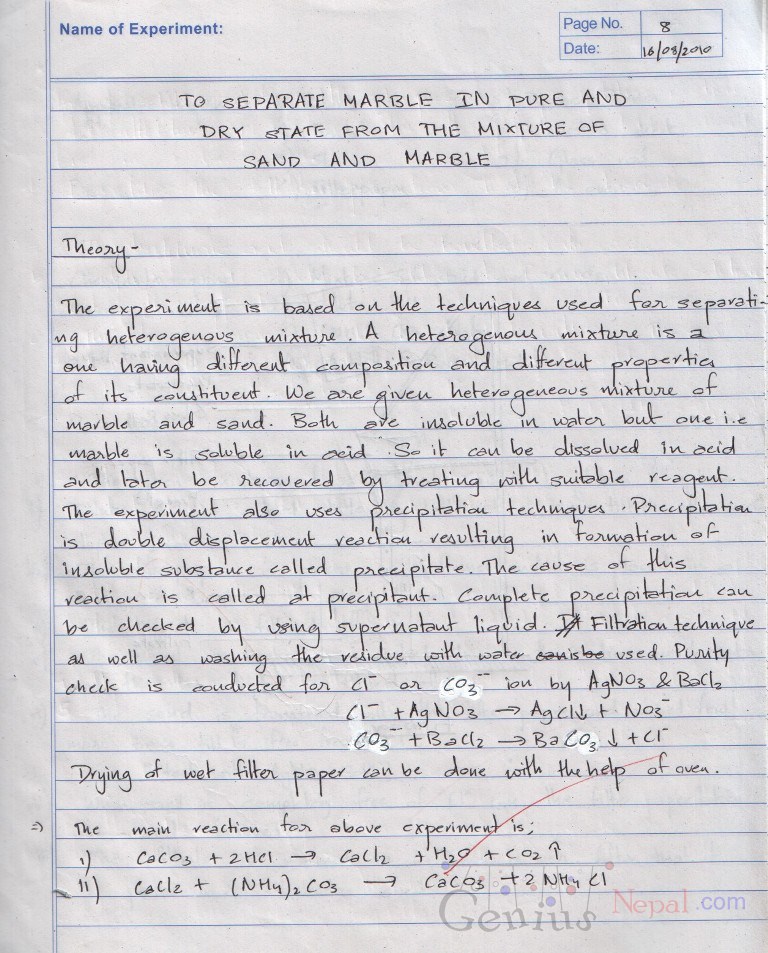 Name of Experiment:
Page No. 8
Date: 16/08/2010
TO SEPARATE MARBLE IN PURE AND
DRY STATE FROM THE MIXTURE OF
SAND AND MARBLE
Theory-
The experiment is based on the techniques used for separati-
ng heterogenous mixture. A heterogenous mixture is a
one having different composition and different properties
of its constituent. We are given heterogeneous mixture of
marble and sand. Both are insoluble in water but one i.e
marble is soluble in acid. So it can be dissolved in acid
and later be recovered by treating with suitable reagent.
The experiment also uses precipitation techniques. Precipitation
is double displacement reaction resulting in formation of
insoluble substance called precipitate. The cause of this
reaction is called at precipitant. Complete precipitation can
be checked by using supernatant liquid. Filtration technique
as well as washing the residue with water used. Purity
check is conducted for Cl⁻ or CO₃⁻⁻ ion by AgNO₃ & BaCl₂
Cl⁻ + AgNO₃ → AgCl↓ + NO₃⁻
CO₃⁻⁻ + BaCl₂ → BaCO₃ ↓ + Cl⁻
Drying of wet filter paper can be done with the help of oven.
⇒) The main reaction for above experiment is;
i) CaCO₃ + 2HCl → CaCl₂ + H₂O + CO₂ ↑
ii) CaCl₂ + (NH₄)₂CO₃ → CaCO₃ + 2NH₄Cl
Genius Nepal.com